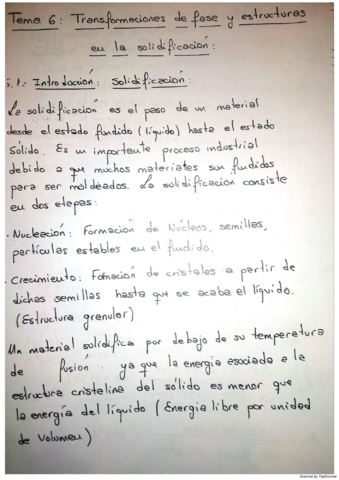 Tema 6: Transformaciones de fase y estructuras
en la solidificación:
5.1.- Introducción: Solidificación:
La solidificación es el paso de un material
desde el estado fundido (líquido) hasta el estado
sólido. Es un importante proceso industrial
debido a que muchos materiales son fundidos
para ser moldeados. La solidificación consiste
en dos etapas:
. Nucleación: Formación de Núcleos, semillas,
partículas estables en el fundido.
. Crecimiento: Formación de cristales a partir de
dichas semillas hasta que se acaba el líquido.
(Estructura granular)
Un material solidifica por debajo de su temperatura
de fusión ya que la energía asociada a la
estructura cristalina del sólido es menor que
la energía del líquido (Energia libre por unidad
de volumen)
Scanned by TapScanner